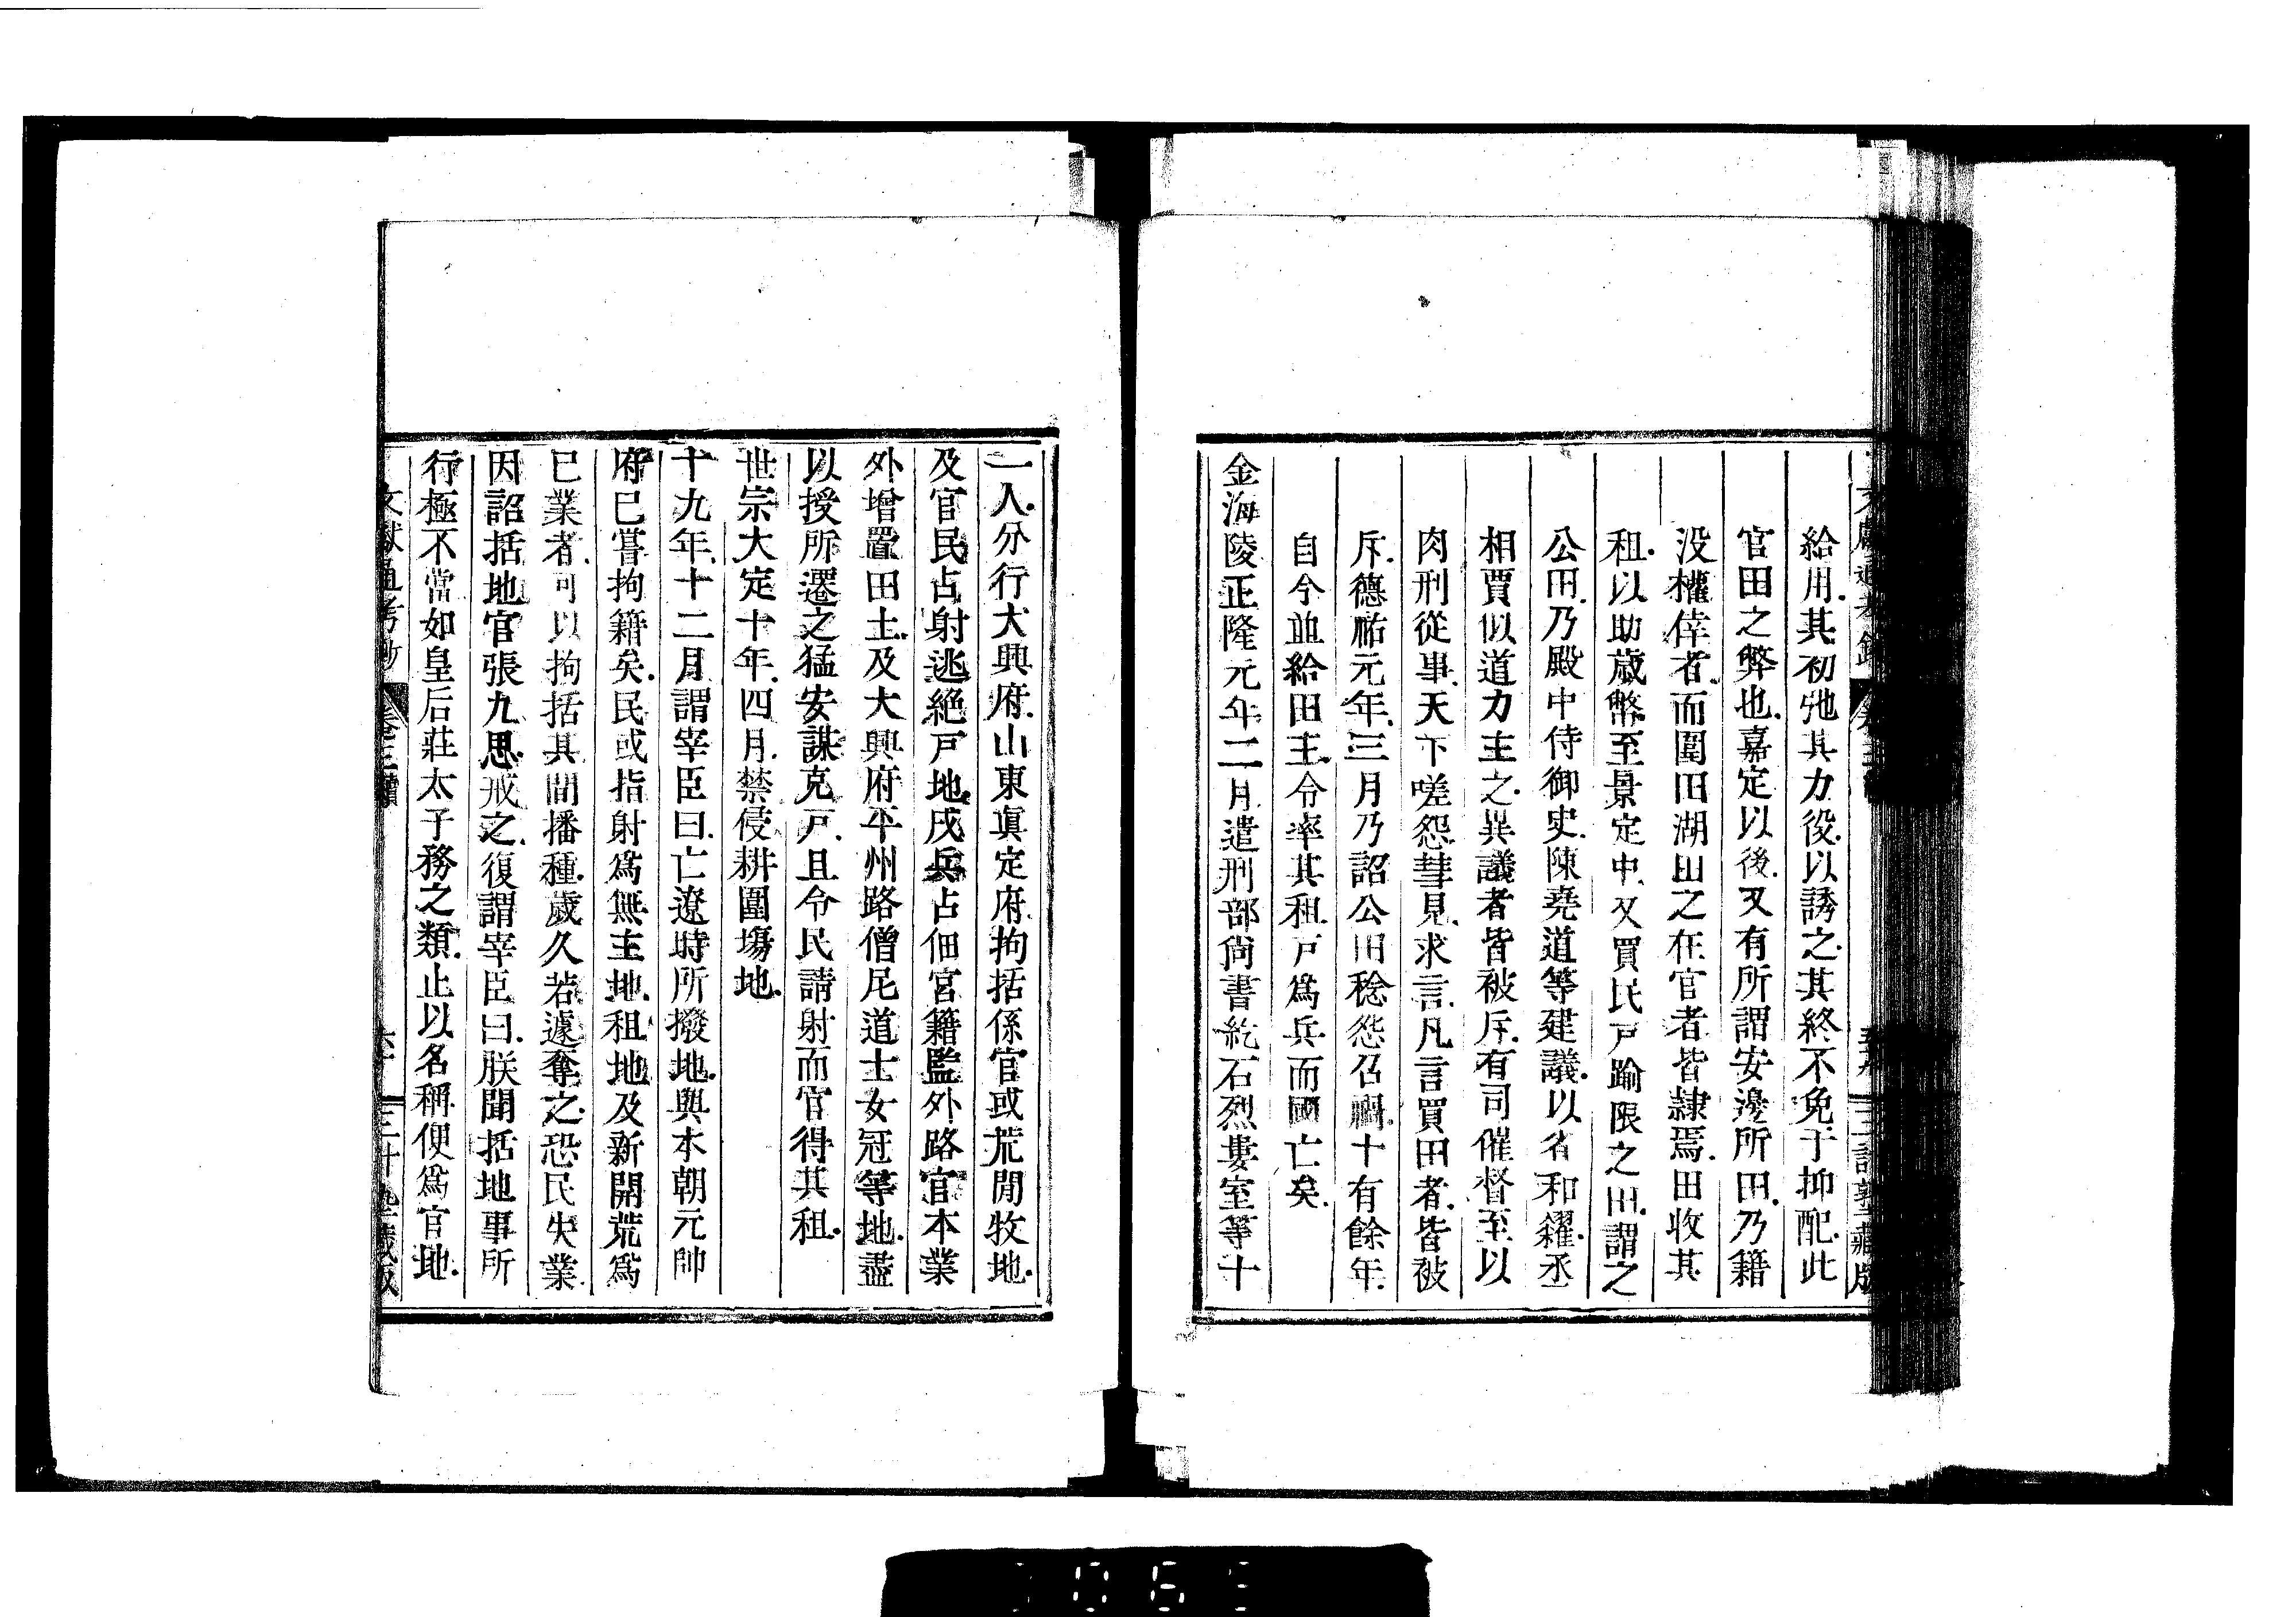 給用.其初弛其力役.以誘之.其終不免于抑配.此
官田之弊也.嘉定以後.又有所謂安邊所田.乃籍
没權倖者.而圍田湖田之在官者皆隷焉.田收其
租.以助歳幣.至景定中.又買民戸踰限之田.謂之
公田.乃殿中侍御史.陳堯道等建議.以省和糴.丞
相賈似道力主之.異議者皆被斥.有司催督至以
肉刑從事.天下嗟怨.彗見.求言.凡言買田者.皆被
斥.德祐元年.三月乃詔公田稔怨召禍.十有餘年.
自今並給田主.令率其租戸爲兵而國亡矣.
金海陵正隆元年二月遣刑部尙書紇石烈婁室等十
一人.分行大興府.山東眞定府.拘括係官或荒閒牧地.
及官民占射逃絶戸地.戍兵占佃宮籍監外路官本業
外增置田土.及大興府平州路僧尼道士女冠等地.盡
以授所遷之猛安謀克戸.且令民請射而官得其租.
世宗大定十年.四月.禁侵耕圍塲地.
十九年.十二月謂宰臣曰.亡遼時所撥地.與本朝元帥
府已嘗拘籍矣.民或指射爲無主地.租地及新開荒爲
已業者.可以拘括其間播種.歲久若遽奪之.恐民失業
因詔括地官張九思.戒之.復謂宰臣曰.朕聞括地事所
行極不當如皇后莊太子務之類.止以名稱便爲官地.